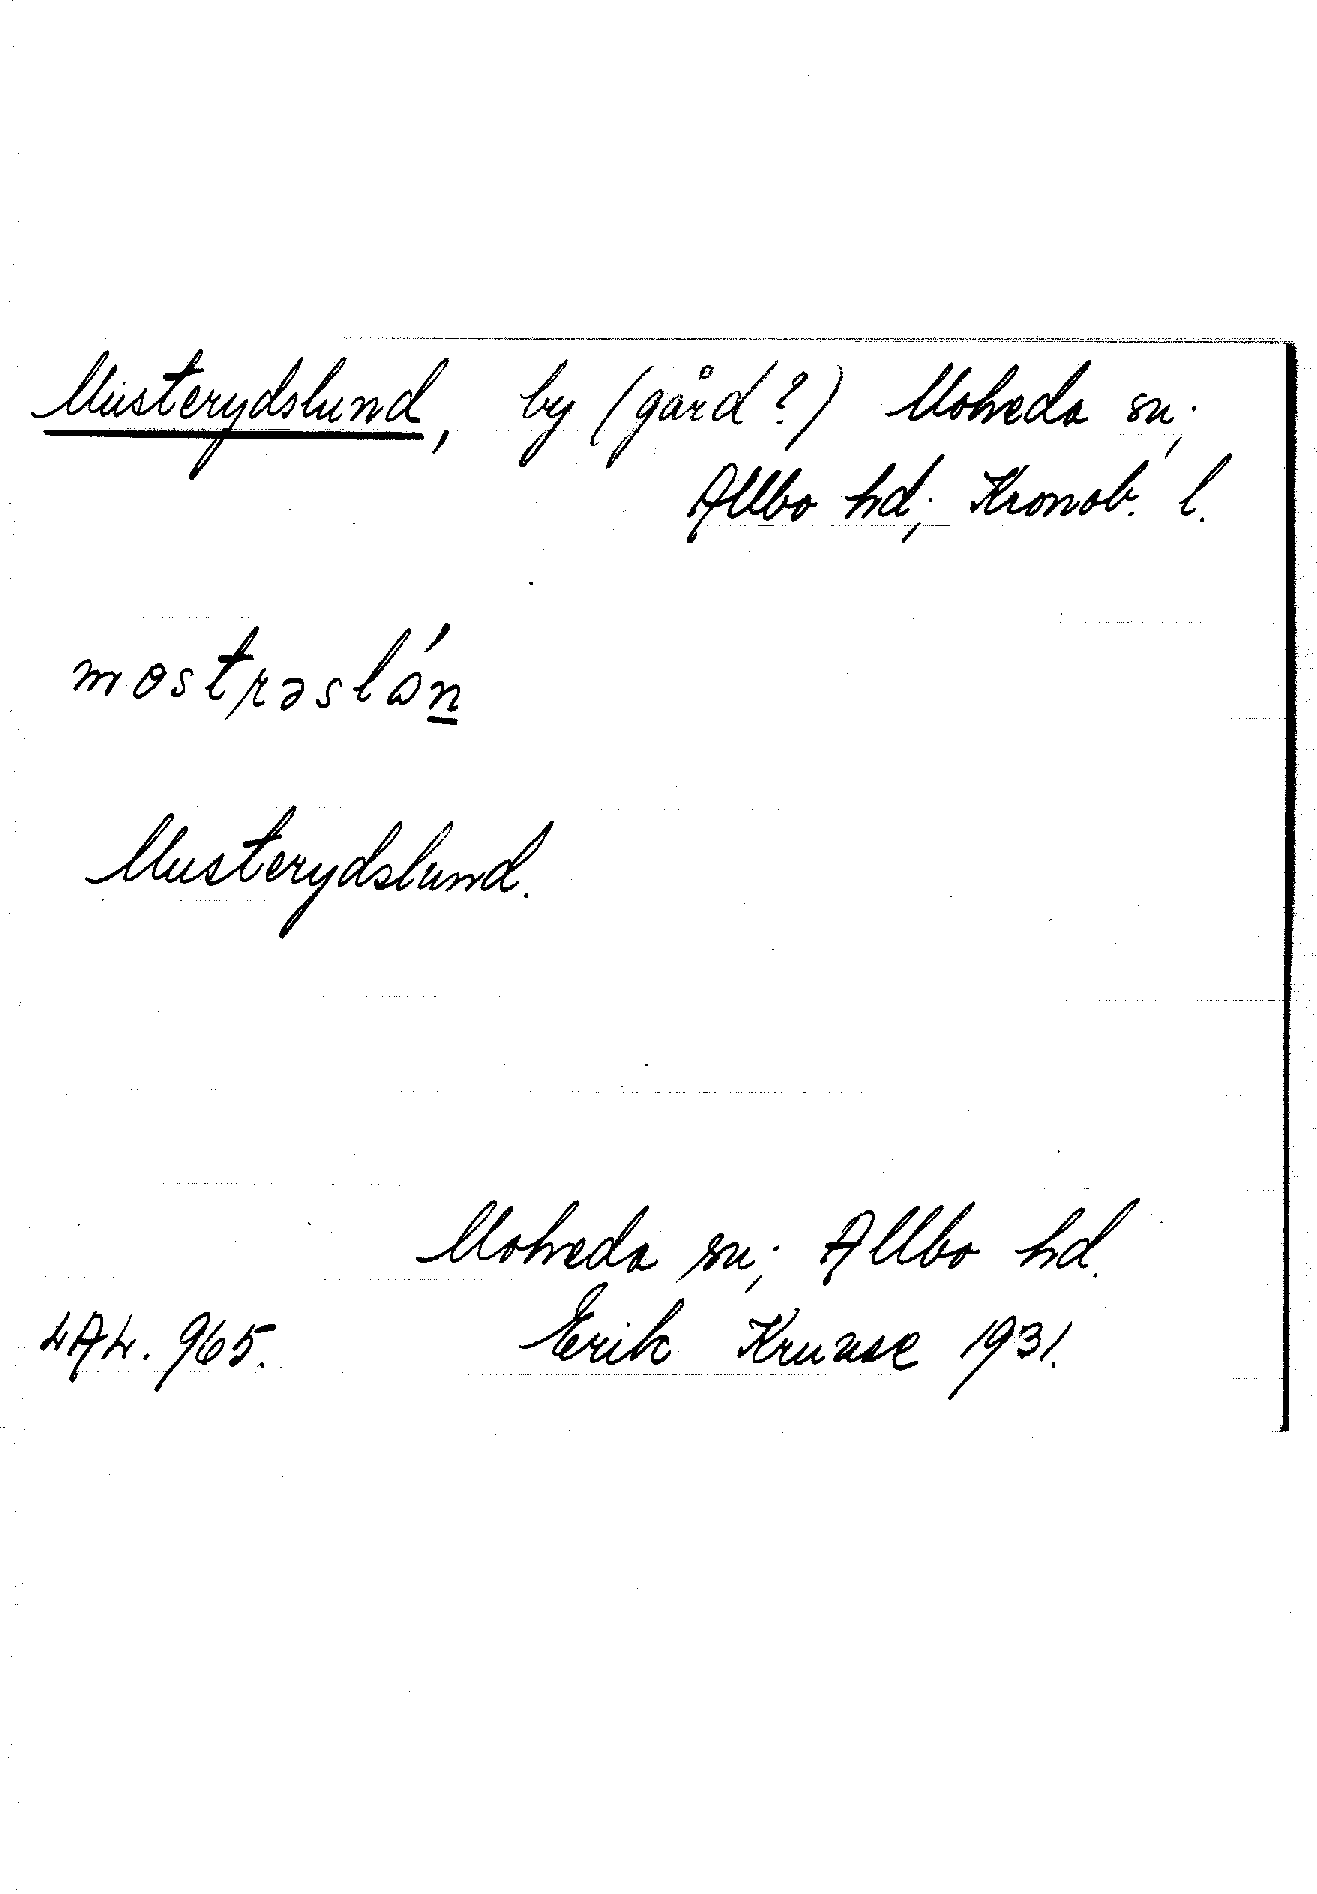 Musterydslund, by (gård?) Moheda sn;
Allbo hd; Kronob. l.
mostrəslón
Musterydslund.
Moheda sn; Allbo hd.
LAL. 965. Erik Kruuse 1931.